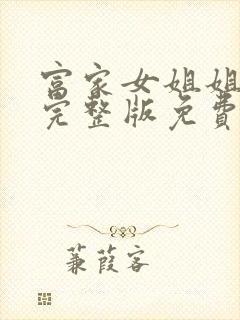 富家女姐姐
完整版免费
蒹葭客